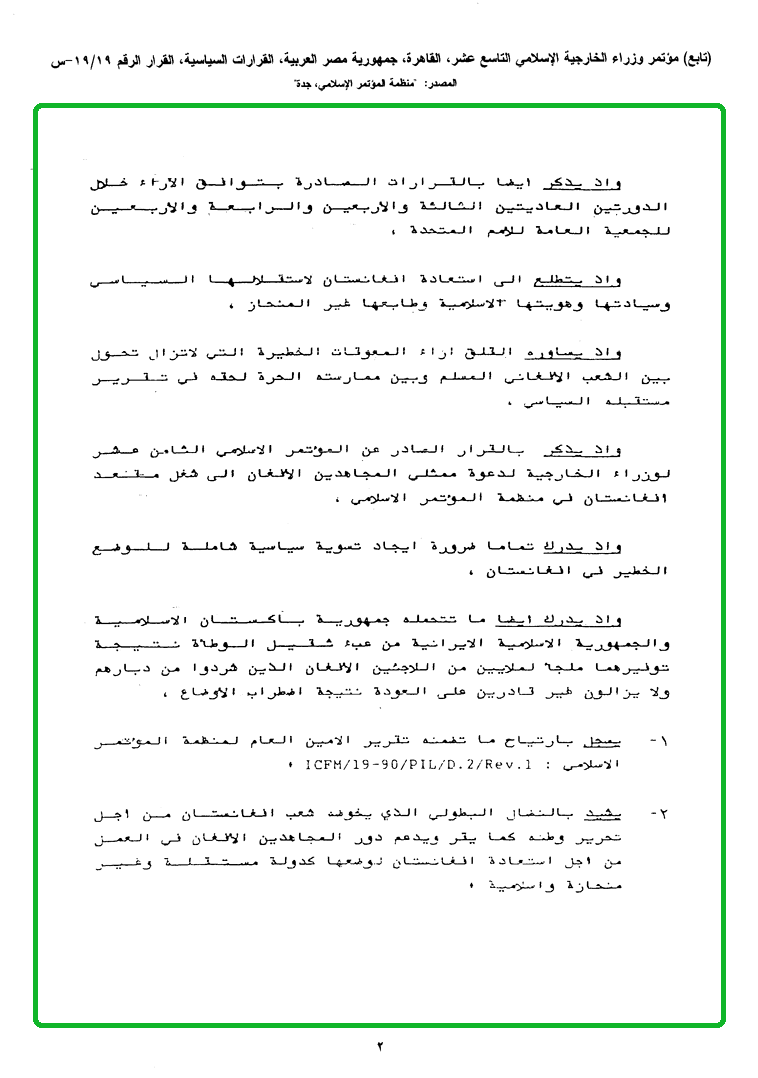 (تابع) مؤتمر وزراء الخارجية الإسلامي التاسع عشر، القاهرة، جمهورية مصر العربية، القرارات السياسية، القرار الرقم ١٩/١٩-س
المصدر: "منظمة المؤتمر الإسلامي، جدة"
واذ يذكر ايضا بالقرارات الصادرة بتوافق الاراء خلال
الدورتين العاديتين الثالثة والاربعين والرابعة والاربعين
للجمعية العامة للامم المتحدة ،
واذ يتطلع الى استعادة افغانستان لاستقلالها السياسي
وسيادتها وهويتها الاسلامية وطابعها غير المنحاز ،
واذ يساوره القلق ازاء المعوقات الخطيرة التي لاتزال تحول
بين الشعب الافغاني المسلم وبين ممارسته الحرة لحقه في تقرير
مستقبله السياسي ،
واذ يذكر بالقرار الصادر عن المؤتمر الاسلامي الثامن عشر
لوزراء الخارجية لدعوة ممثلي المجاهدين الافغان الى شغل مقعد
افغانستان في منظمة المؤتمر الاسلامي ،
واذ يدرك تماما ضرورة ايجاد تسوية سياسية شاملة للوضع
الخطير في افغانستان ،
واذ يدرك ايضا ما تتحمله جمهورية باكستان الاسلامية
والجمهورية الاسلامية الايرانية من عبء ثقيل الوطأة نتيجة
توفيرهما ملجأ لملايين من اللاجئين الافغان الذين شردوا من ديارهم
ولا يزالون غير قادرين على العودة نتيجة اضطراب الأوضاع ،
١- يسجل بارتياح ما تضمنه تقرير الامين العام لمنظمة المؤتمر
الاسلامي : ICFM/19-90/PIL/D.2/Rev.1 ٠
٢- يشيد بالنضال البطولي الذي يخوضه شعب افغانستان من اجل
تحرير وطنه كما يقر ويدعم دور المجاهدين الافغان في العمل
من اجل استعادة افغانستان لوضعها كدولة مستقلة وغير
منحازة واسلامية ٠
٢